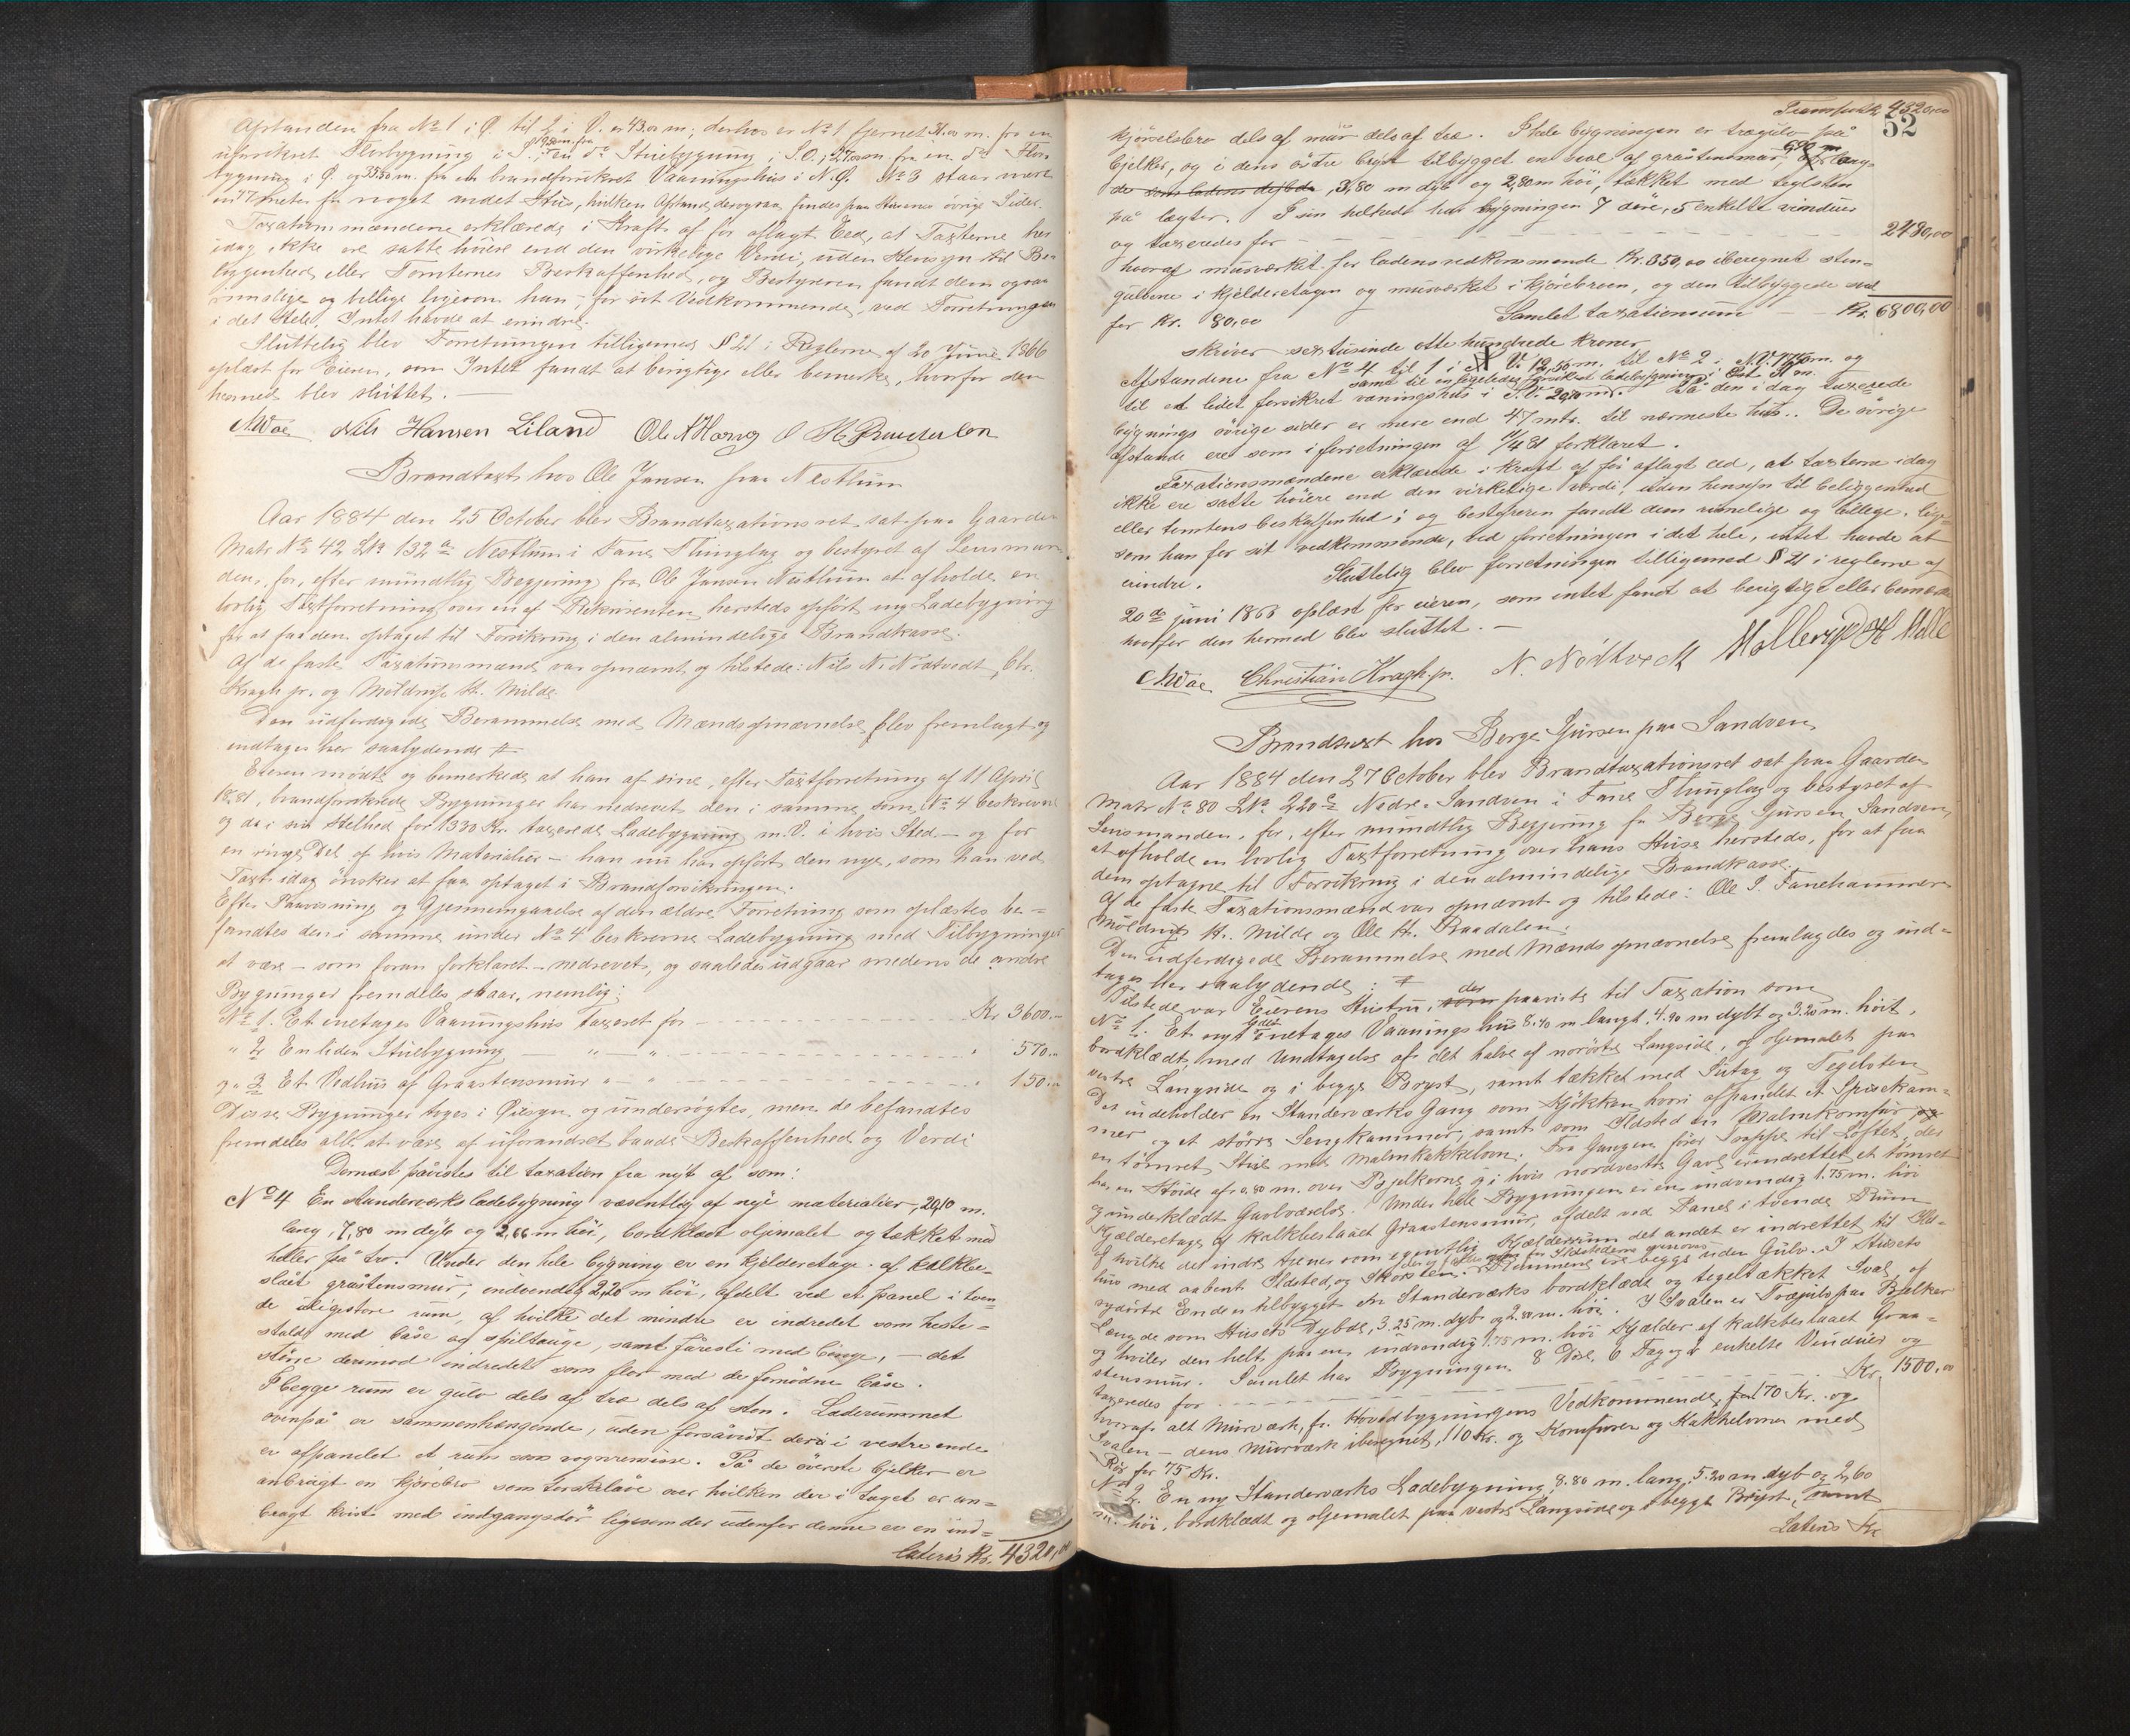 Afstanden fra No 1 i Ø. til 2 i V. er 43.00 m; derhos er No 1 fjernet 31.00 m. fra en
uforsikret Florbygning i S., 19.50 m. fra en do Stuebygning i S.O., 27.00 m fra en do Flor-
bygning i Ø. og 35.50 m. fra et brandforsikret Vaaningshus i N.Ø. No 3 staar mere
end 47 meter fra noget andet Huus, hvilken Afstand desogsaa findes paa Husenes øvrige Sider.
Taxationsmændene erklærede i Kraft af før aflagt Eed, at Taxterne her
idag ikke ere satte høiere end den virkelige Verdi, uden Hensyn til Be-
liggenhed eller Tomternes Beskaffenhed, og Bestyreren fandt dem ogsaa
rimelige og billige ligesom han, for sit Vedkommende, ved Forretningen
i det Hele, Intet havde at erindre.
Sluttelig blev Forretningen tilligemed § 21 i Reglerne af 20 Juni 1866
oplæst for Eieren, som Intet fandt at berigtige eller bemerke, hvorfor den
hermed blev sluttet. —
Nils Hansen Liland
Brandtaxt hos Ole Jansen paa Nesthun
Aar 1884 den 25 October blev Brandtaxationsret sat paa Gaarden
Matr No 42 LNo 132 a Nesthun i Fane Thinglag og bestyret af Lensman-
den, for, efter mundtlig Begjering fra Ole Jansen Nesthun at afholde en
lovlig Taxtforretning over en af Rekvirenten hersteds opført ny Ladebygning
for at faa den optaget til Forsikring i den almindelige Brandkasse.
Af de faste Taxationsmænd var opnævnt og tilstede: Nils N. Nødtvedt, Chr.
Kragh jr. og Møldrup H. Milde
Den udferdigede Berammelse med Mændsopnævnelse blev fremlagt og
indtages her saalydende #
Eieren mødte og bemerkede at han af sine, efter Taxtforretning af 11 April
1881, brandforsikrede Bygninger har nedrevet den i samme som No 4 beskrevne
og da i sin Helhed for 1330 Kr. taxerede Ladebygning m.V. i hvis Sted — og for
en ringe Del af hvis Materialier — han nu har opført den nye, som han ved
Taxt idag ønsker at faa optaget i Brandforsikringen.
Efter Paavisning og Gjennemgaaelse af den ældre Forretning som oplæstes be-
fandtes den i samme under No 4 beskrevne Ladebygning med Tilbygninger
at være — som foran forklaret — nedrevet, og saaledes udgaar medens de andre
Bygninger fremdeles staar, nemlig:
No 1. Et enetages Vaaningshus taxeret for — Kr 3600.—
" 2 En liden Stuebygning — " — " — " 570.—
og " 3 Et Vedhus af Graastensmur " — " — " 150.—
Disse Bygninger toges i Øiesyn og undersøgtes, men de befandtes
fremdeles alle at være af uforandret baade Beskaffenhed og Verdi
Dernæst påvistes til taxation fra nyt af som:
No 4 En standerværks ladebygning væsentlig af nye materialier, 20,10 m.
lang, 7,80 m dyb og 2,66 m høi, bordklædt oljemalet og tækket med
heller på tro. Under den hele bygning er en kjelderetage af kalkbe-
slåét gråstensmur, indvendig 2,20 m høi, afdelt ved et panel i tven-
de uligestore rum, af hvilke det mindre er indredet som heste-
stald med båse og spiltauge, samt fåresti med binge, — det
større derimod indredet som flor med de fornødne båse.
I begge rum er gulv dels af træ dels af sten. Laderummet
ovenpå er sammenhængende, uden forsåvidt der i vestre ende
er afpanelet et rum som vognremisse. På de øverste bjelker er
anbragt en kjørebro som tørskelåve over hvilken der i taget er an-
bragt kvist med indgangsdør ligesom der udenfor denne er en ind-
Lateris Kr. 4320,00
Transport Kr 4320,00
52
kjørselsbro dels af mur dels af træ. I hele bygningen er trægulv på
bjelker, og i dens østre bryst tilbygget en sval af gråstensmur, 6,90 m lang
de som ladens dybde, 3,80 m dyb og 2,80 m høi, tækket med teglsten
på lægter. I sin helhed har bygningen 7 døre, 5 enkelte vinduer
og taxeredes for — 2480,00
hvoraf murværket for ladens vedkommende Kr. 350,00 iberegnet sten-
gulvene i kjelderetagen og murværket i kjørebroen, og den tilbyggede sval
for Kr. 80,00 Samlet taxationssum — Kr. 6800,00
skriver sextusinde otte hundrede kroner
Afstandene fra No 4 til 1 i V. 12,50 m. til No 2 i N.V. m. og
til et lidet forsikret våningshus i S.V. 20,10 m. På den i dag taxerede
samt til en ligeledes forsikret ladebygning i Øst m.
bygnings øvrige sider er mere end 47 mtr. til nærmeste hus. De øvrige
afstande ere som i forretningen af 11/4 81 forklaret.
Taxationsmændene erklærede i kraft af før aflagt eed, at taxterne idag
ikke ere satte høiere end den virkelige værdi, uden hensyn til beliggenhed
eller tomtens beskaffenhed; og bestyreren fandt dem rimelige og billige, lige-
som han for sit vedkommende, ved forretningen i det hele, intet havde at
erindre. Sluttelig blev forretningen tilligemed § 21 i reglerne af
20de juni 1866 oplæst for eieren, som intet fandt at berigtige eller bemærke
hvorfor den hermed blev sluttet. —
Christian Kragh jr. N. Nødtvedt Møllerup H Milde
Brandtaxt hos Børge Sjursen paa Sandven
Aar 1884 den 27 October blev Brandtaxationsret sat paa Gaarden
Matr No 80 LNo 220 a Nedre-Sandven i Fane Thinglag og bestyret af
Lensmanden, for, efter mundtlig Begjering fra Børge Sjursen Sandven
at afholde en lovlig Taxtforretning over hans Huse hersteds, for at faa
dem optagne til Forsikring i den almindelige Brandkasse.
Af de faste Taxationsmænd var opnævnt og tilstede: Ole S. Fanehammer
Møldrup H. Milde og Ole H. Raadalen.
Den udferdigede Berammelse med Mænds opnævnelse fremlagdes og ind-
tages her saalydende: #
Tilstede var Eierens Hustru, der paaviste til Taxation som
No 1. Et nyt lidet enetages Vaaningshus 8.40 m langt, 4.90 m dybt og 3.20 m. høit,
bordklædt, med Undtagelse af det halve af norøstre Langside, og oljemalet paa
vestre Langside og i begge Bryst, samt tækket med Sutag og Tegelsten
Det indeholder en Standerværks Gang som Kjøkken hvori afpanelet et Spisekam-
mer og et større Sengkammer, samt som Ildsted en Malmkomfur og
en tømret Stue med Malmkakkelovn. Fra Gangen fører Trappe til Loftet, der
har en Høide af 0.80 m. over Bjelkerne og i hvis nordvestre Gavl er indrettet et tømret
og underklædt Gavlværelse. Under hele Bygningen er en indvendig 1.75 m. høi
Kjælderetage af kalkbeslaaet Graastensmur, afdelt ved Panel i tvende Rum
af hvilke det indre tjener som egentlig Kjælderrum det andet er indrettet til Ild-
hus med aabent Ildsted, og Skorsten. Rummene ere begge uden Gulv. I Husets
sydøstre Ende er tilbygget en Standerværks bordklædt og tegeltækket Sval, af
Længde som Husets Dybde, 3.25 m. dyb og 2.80 m. høi. I Svalen er Trægulv paa Bjelker
og hviler den helt paa en indvendig 1.75 m. høi Kjælder af kalkbeslaaet Graa-
stensmur. Samlet har Bygningen 8 Døre, 6 Fag og 1 enkelte Vinduer og
taxeredes for — Kr. 1500,00
hvoraf alt Murværk, for Hovedbygningens Vedkommende, for 170 Kr. og
Svalen — dens Murværk iberegnet, 110 Kr. og Komfuren og Kakkelovnen med
Rør for 75 Kr.
No 2. En ny Standerværks Ladebygning 8.80 m. lang, 5.20 m dyb og 2,60
m. høi, bordklædt og oljemalet paa vestre Langside og i begge Bryst, samt
Lateris Kr